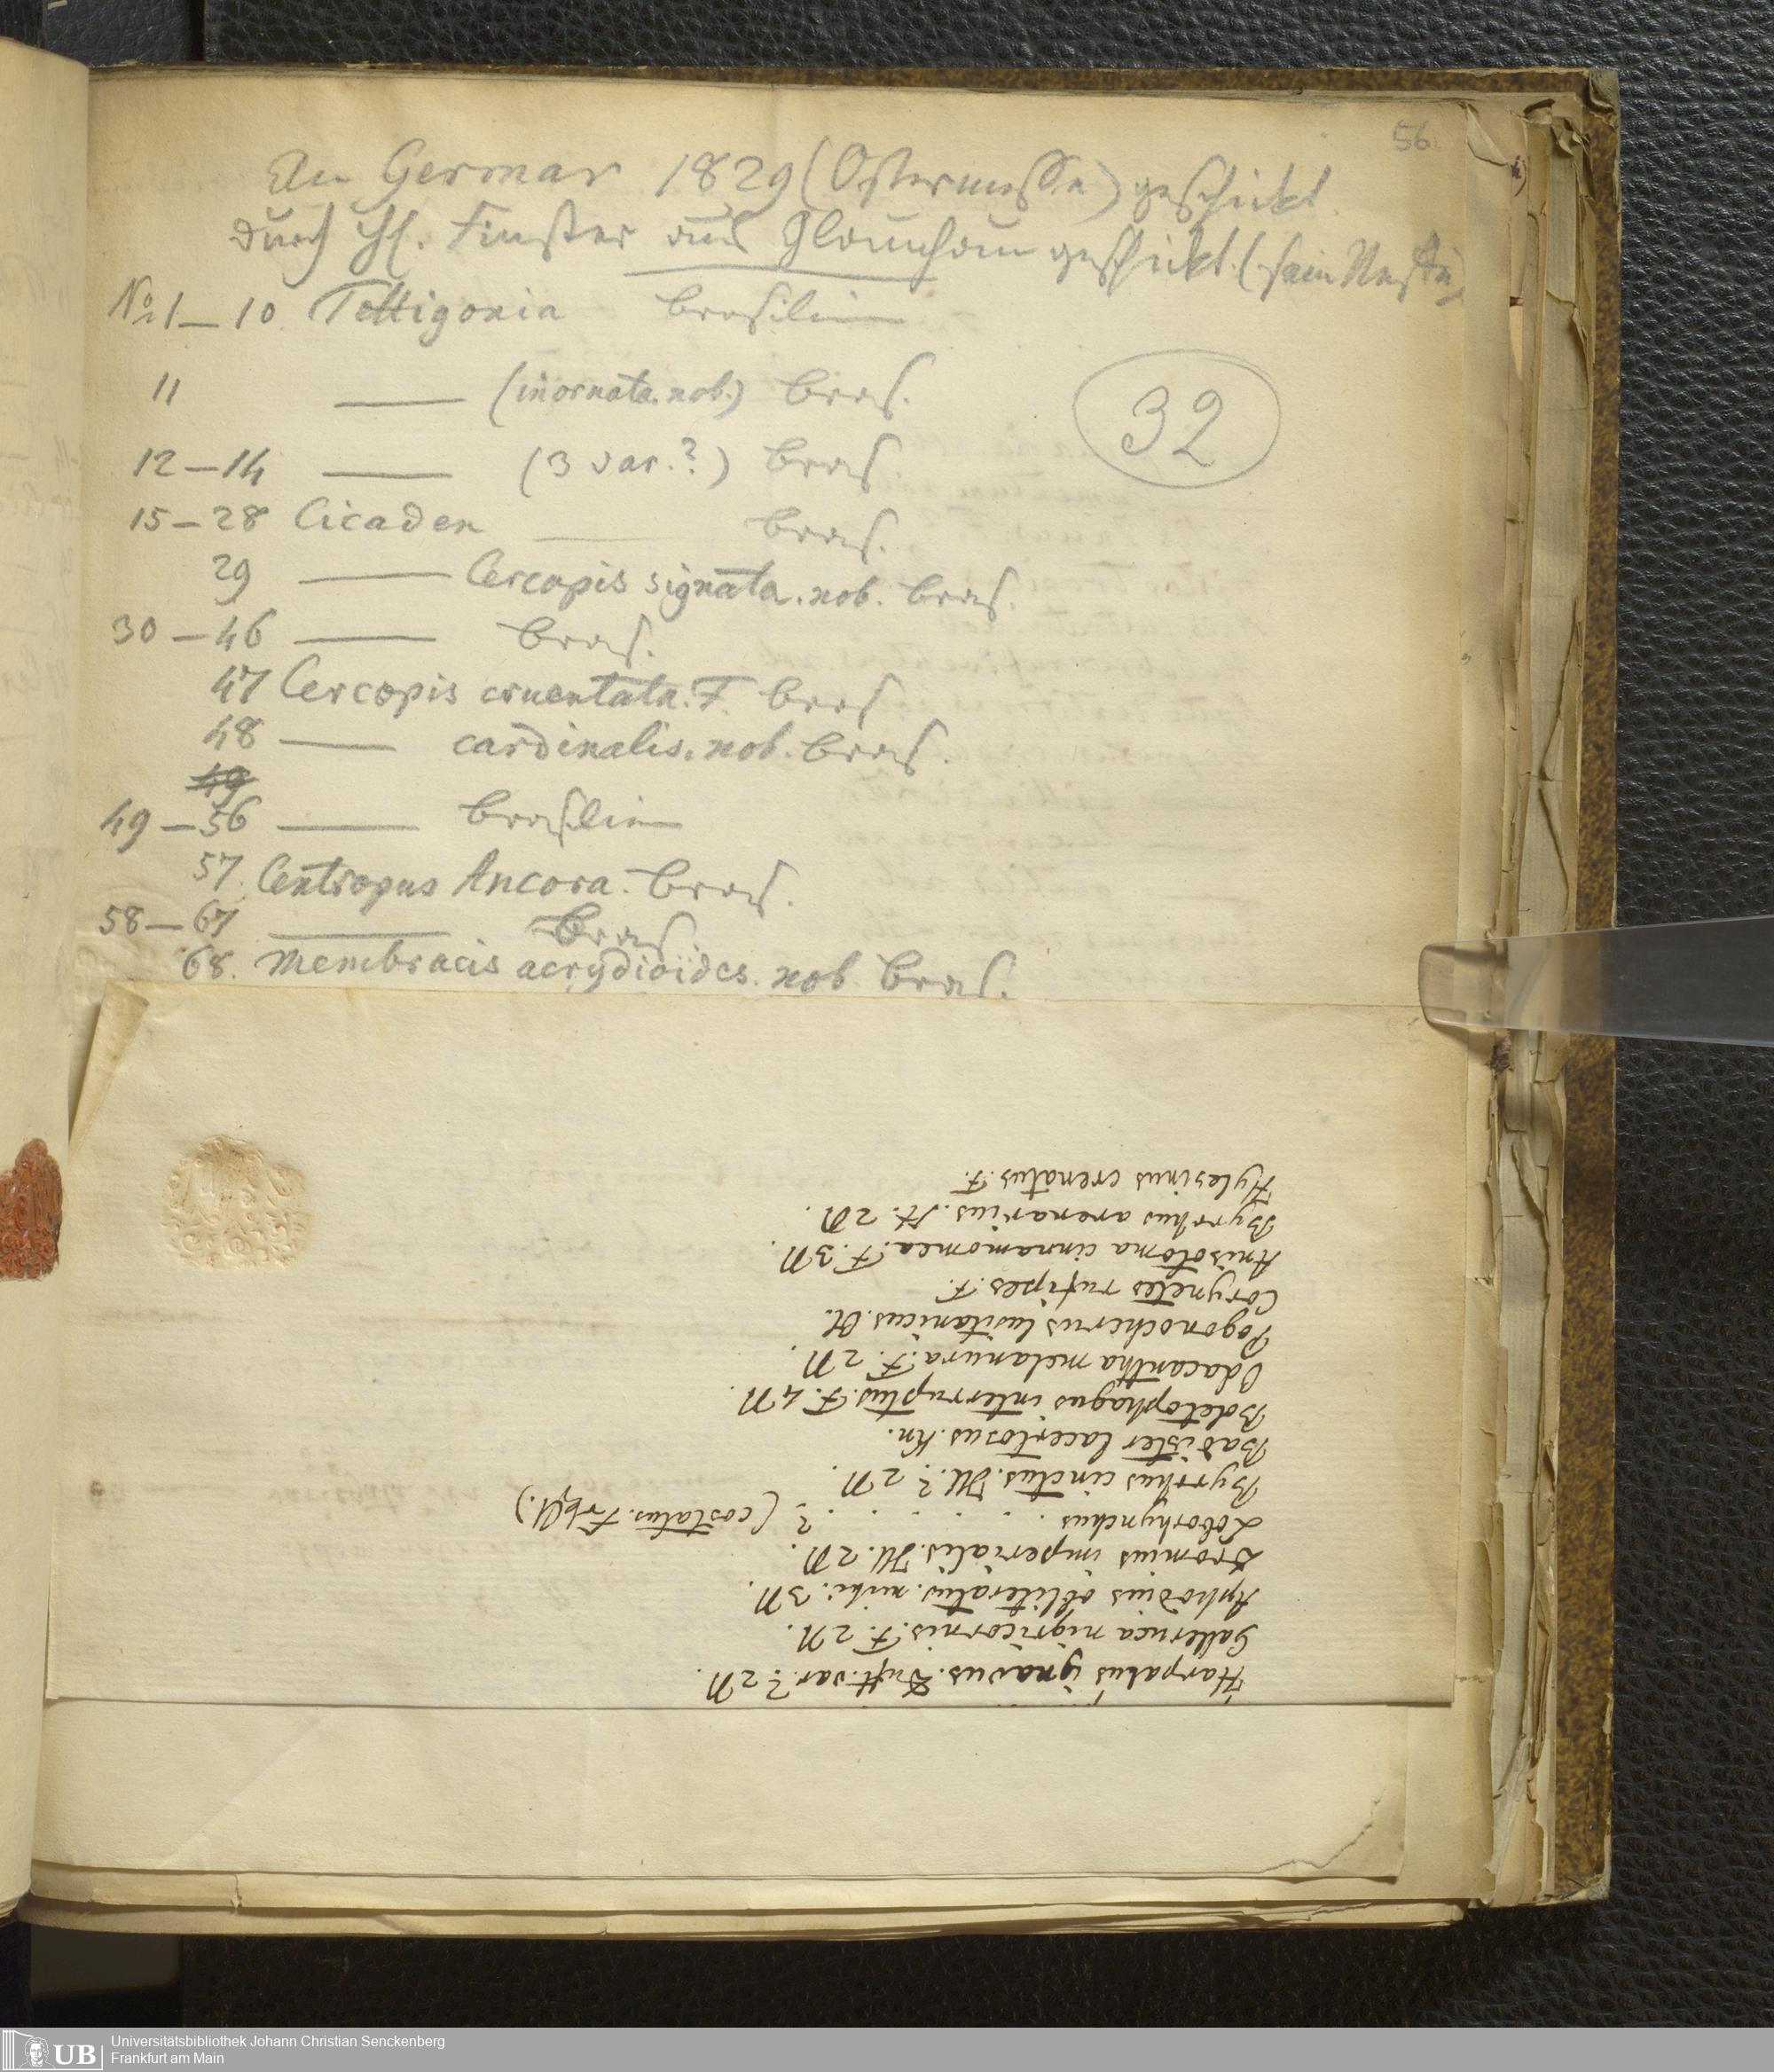 56
An Germar 1829 (Ostermesse) geschickt
durch H. Finster aus Glauchau geschickt (sein
No 1 — 10 Tettigonia Brasilien
11 —— (inornata. nob.) Bras.
32
12 — 14 —— (3 var.?) Bras
15 — 28 Cicaden —— Bras.
29 —— Cercopis signata. nob. Bras.
30 — 46 —— Bras.
47 Cercopis cruentata. F. Bras
48 —— cardinalis. nob. Bras.
49
49 — 56 —— Brasilien
57. Centropus Ancora. Bras.
58 — 67 —— Bras.
68. Membracis acrydioides. nob Bras.
Harpalus ignavus. Duft. var.? 2 N.
Galleruca nigricornis. F. 2 N.
Aphodius obliteratus. mihi. 3 N.
Dromius imperialis. Ill. 2 N.
Loborhynchus . . . . . ? (costatus. .)
Byrrhus cinctus. Ill.? 2 N.
Badister lacertosus. Kn.
Boletophagus interruptus. F. 4 N.
Odacantha melanura. F. 2 N.
Pogonocherus lusitanicus. Ol.
Corynetes rufipes. F.
Anisotoma cinnamomea. F. 3 N.
Byrrhus arenarius. St. 2 N.
Hylesinus crenatus. F.
UB Universitätsbibliothek Johann Christian Senckenberg
Frankfurt am Main